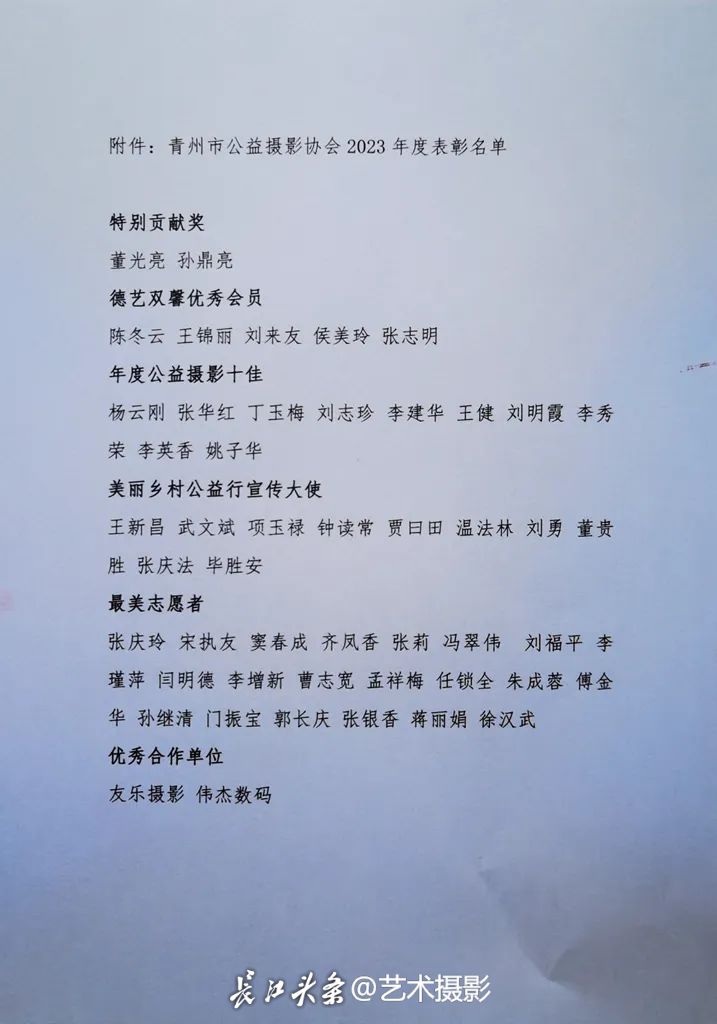 附件：青州市公益摄影协会2023年度表彰名单
特别贡献奖
董光亮 孙鼎亮
德艺双馨优秀会员
陈冬云 王锦丽 刘来友 侯美玲 张志明
年度公益摄影十佳
杨云刚 张华红 丁玉梅 刘志珍 李建华 王健 刘明霞 李秀
荣 李英香 姚子华
美丽乡村公益行宣传大使
王新昌 武文斌 项玉禄 钟读常 贾曰田 温法林 刘勇 董贵
胜 张庆法 毕胜安
最美志愿者
张庆玲 宋执友 窦春成 齐凤香 张莉 冯翠伟 刘福平 李
瑾萍 闫明德 李增新 曹志宽 孟祥梅 任锁全 朱成蓉 傅金
华 孙继清 门振宝 郭长庆 张银香 蒋丽娟 徐汉武
优秀合作单位
友乐摄影 伟杰数码
长江头条@艺术摄影